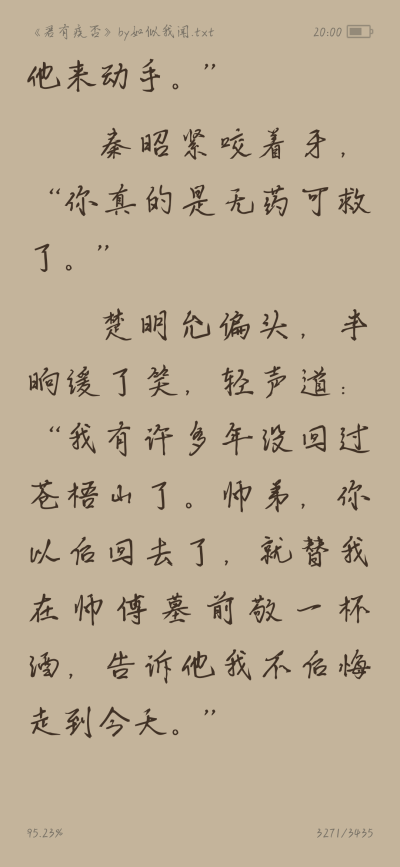 《君有疾否》by如似我闻.txt 20:00
他来动手。”
秦昭紧咬着牙，
“你真的是无药可救
了。”
楚明允偏头，半
晌缓了笑，轻声道：
“我有许多年没回过
苍梧山了。师弟，你
以后回去了，就替我
在师傅墓前敬一杯
酒，告诉他我不后悔
走到今天。”
95.23% 3271/3435